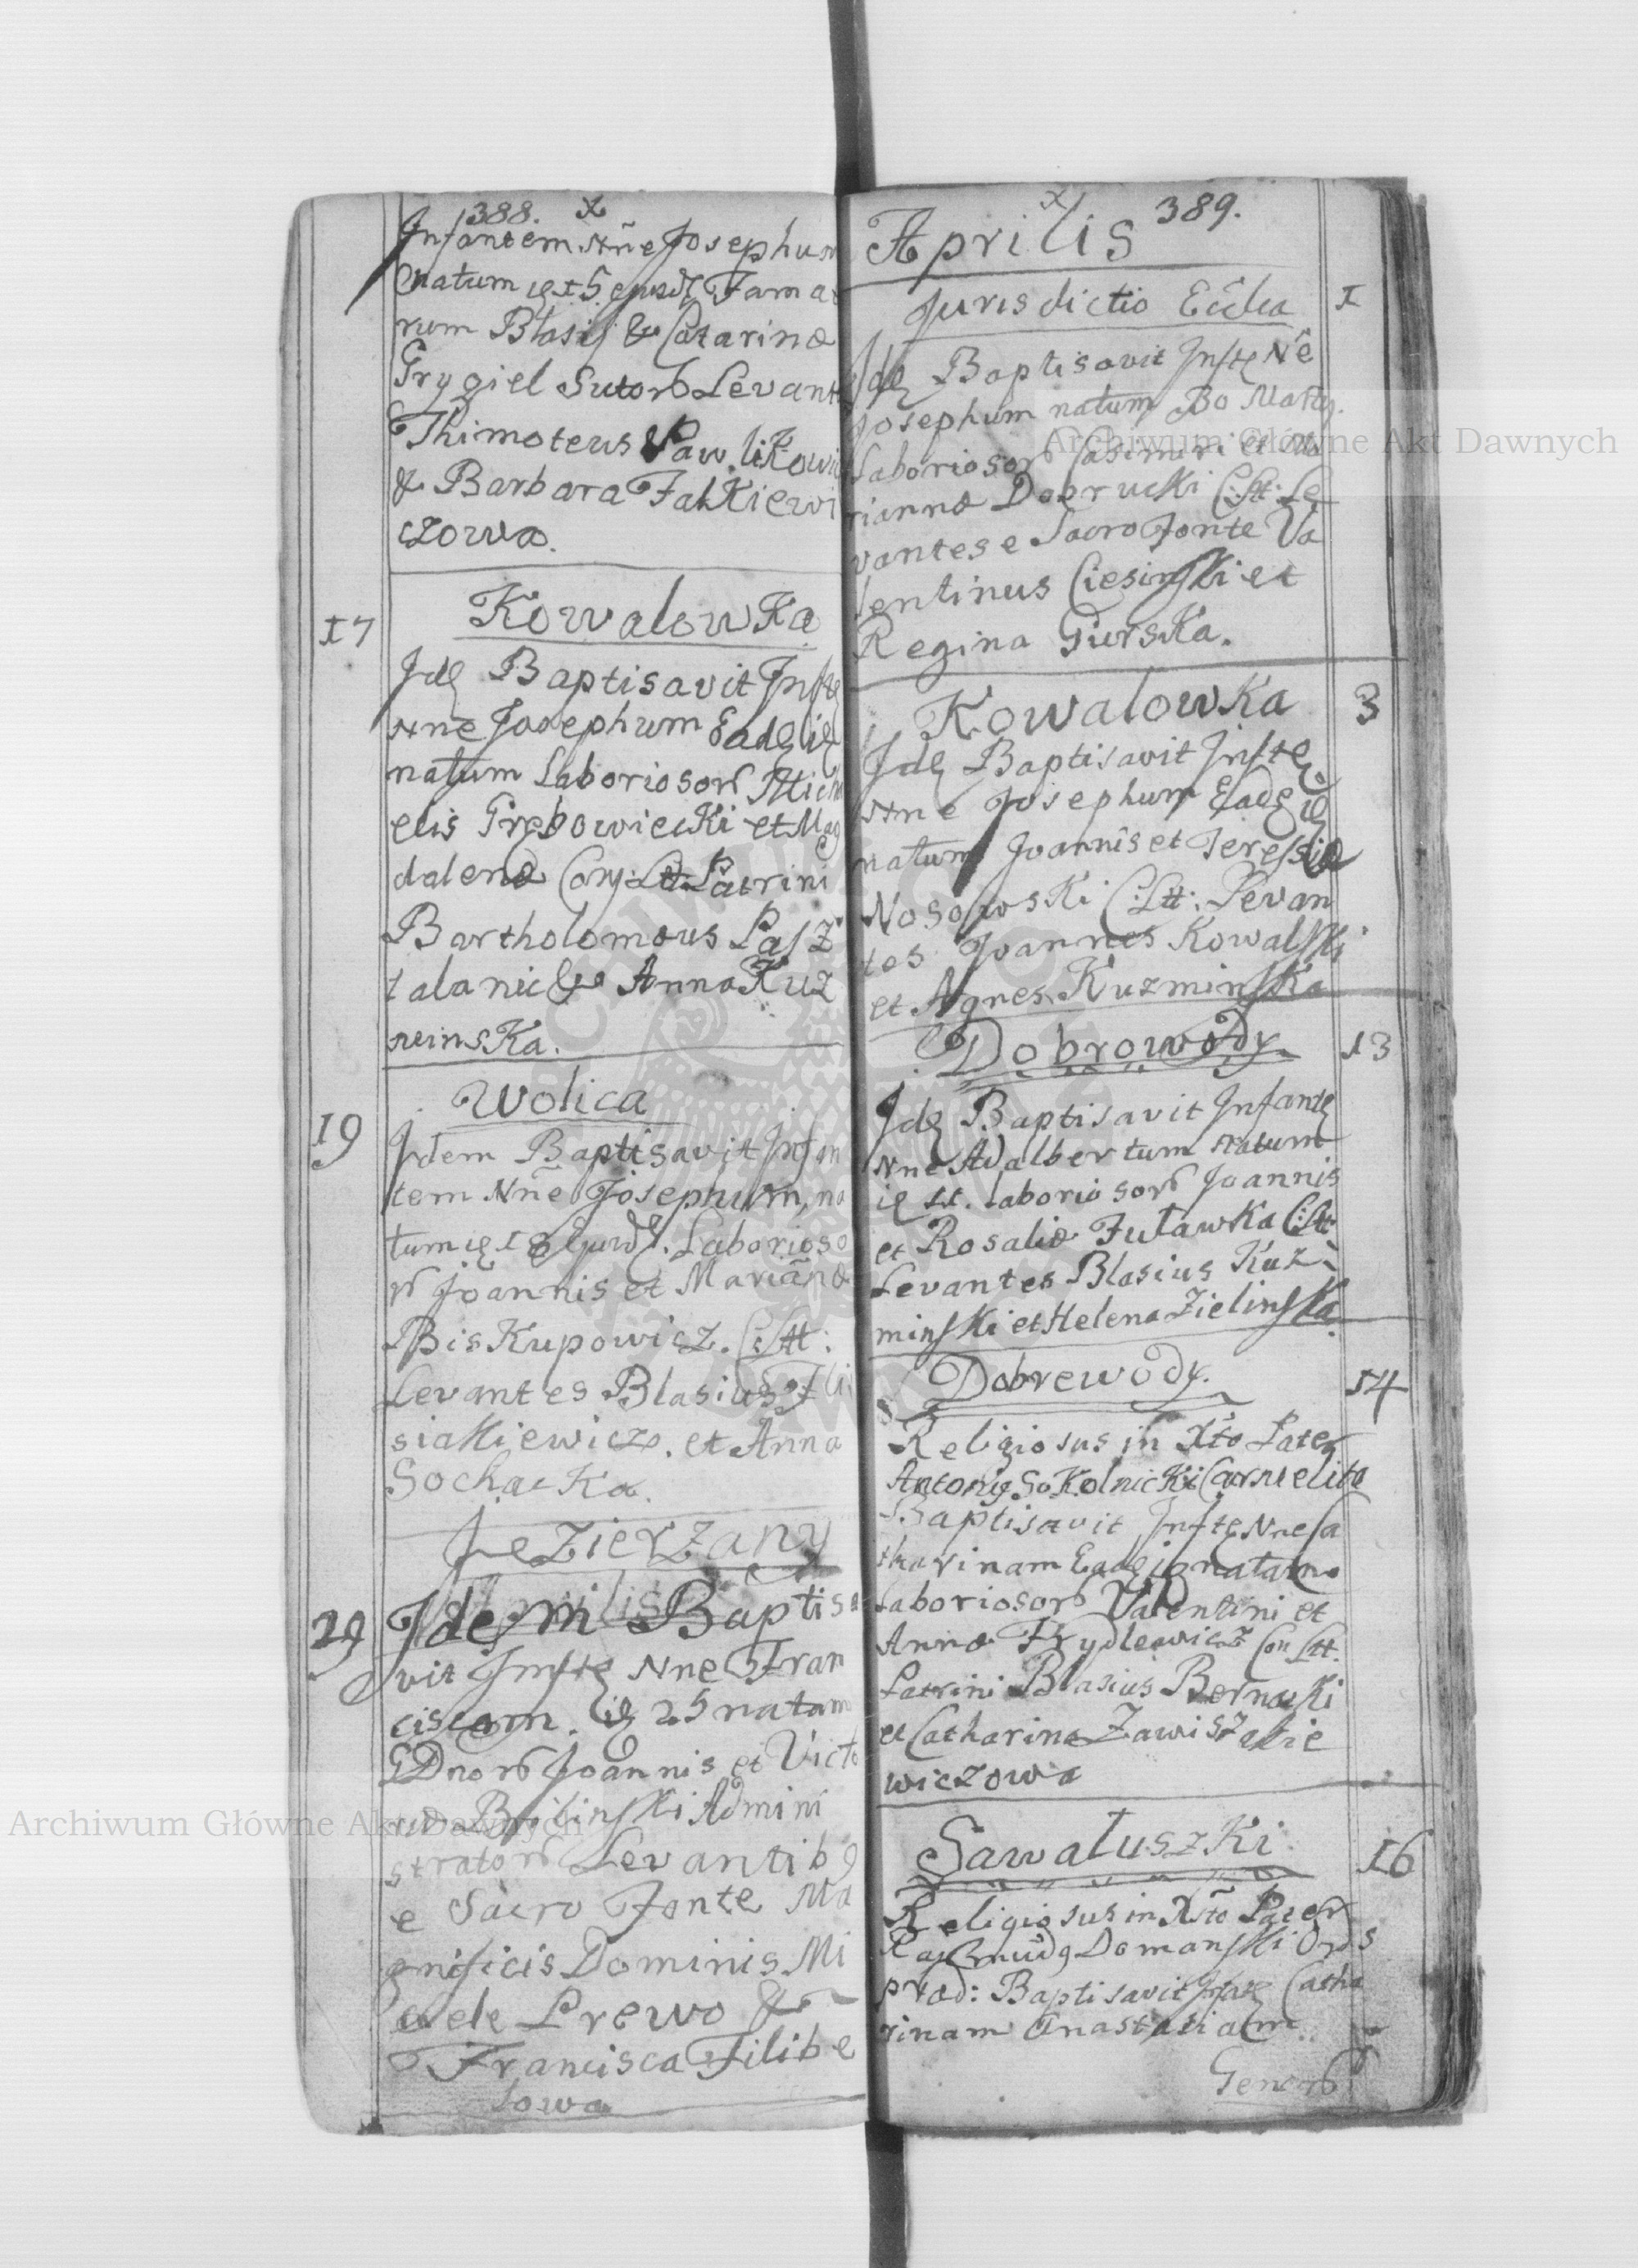 388. x
Infantem Nñe Josephum
natum ie 15 ejusd Fama
rum Blasij & Catarinæ
Grygiel Sutor Levant
Thimoteus Pawlikowi
& Barbara Falkiewi
czowa.
Kowalowka
17
Jde Baptisavit Infte
Nne Josephum Eade ie
natum Laborior Mich
elis Grębowiecki et Mag
dalenæ Conj: Ltt. Patrini
Bartholomæus Pasz
talanic & Anna Kuz
neinska.
Wolica
19
Jdem Baptisavit Infan
tem Nñe Josephum, na
tum ie 18 Ejusd. Laborioso
r Joannis et Mariañæ
Biskupowicz. C: Ltt:
Levantes Blasius
siakiewicz. et Anna
Sochacka.
Jezierzany
29
Jdem Baptisa
vit Infte Nne Fran
ciscam. ie 25 natam
GDnor Joannis et Victo
riæ Brilinski Admini
strator Levantib9
e Sacro Fonte Ma
gnificis Dominis Mi
aele Prewo &
Francisca Filibe
rowa
x 389.
Aprilis
Jurisdictio Eccla
1
Jde Baptisavit Infte Ne
Josephum natum 30 Marty.
Laboriosor Casimiri et Ma
riannæ Dobrucki C: Ltt: Le
vantes e Sacro Fonte Va
lentinus Ciesinski et
Regina Giurska.
Kowalowka
3
Jde Baptisavit Infte
Nne Josephum Eade ie
natum Joannis et Teressiæ
Nosowski C: Ltt: Levan
tes Joannes Kowalski
et Agnes Kuzminska
Dobrowody
13
Jde Baptisavit Infante
Nne Adalbertum natum
ie 11. Laboriosor Joannis
et Rosaliæ Futawka C: Ltt.
Levantes Blasius Kuz
minski et Helena Zielinska.
Dobrewody.
14
Religiosus in Xto Pater
Antoni9 Sokolnicki Carmelita
Baptisavit Infte Nne Ca
tharinam Eade ie natam.
Laboriosor Valentini et
Annæ Frydlewicz Con Ltt.
Patrini Blasius Bernacki
et Catharina Zawiszakie
wiczowa
Sawaluszki
16
Religiosus in Xsto Pater
Raymud9 Domanski Ords
Præd: Baptisavit Infate Catha
rinam Anastasiam.
Generor
Archiwum Główne Akt Dawnych
Archiwum Główne Akt Dawnych